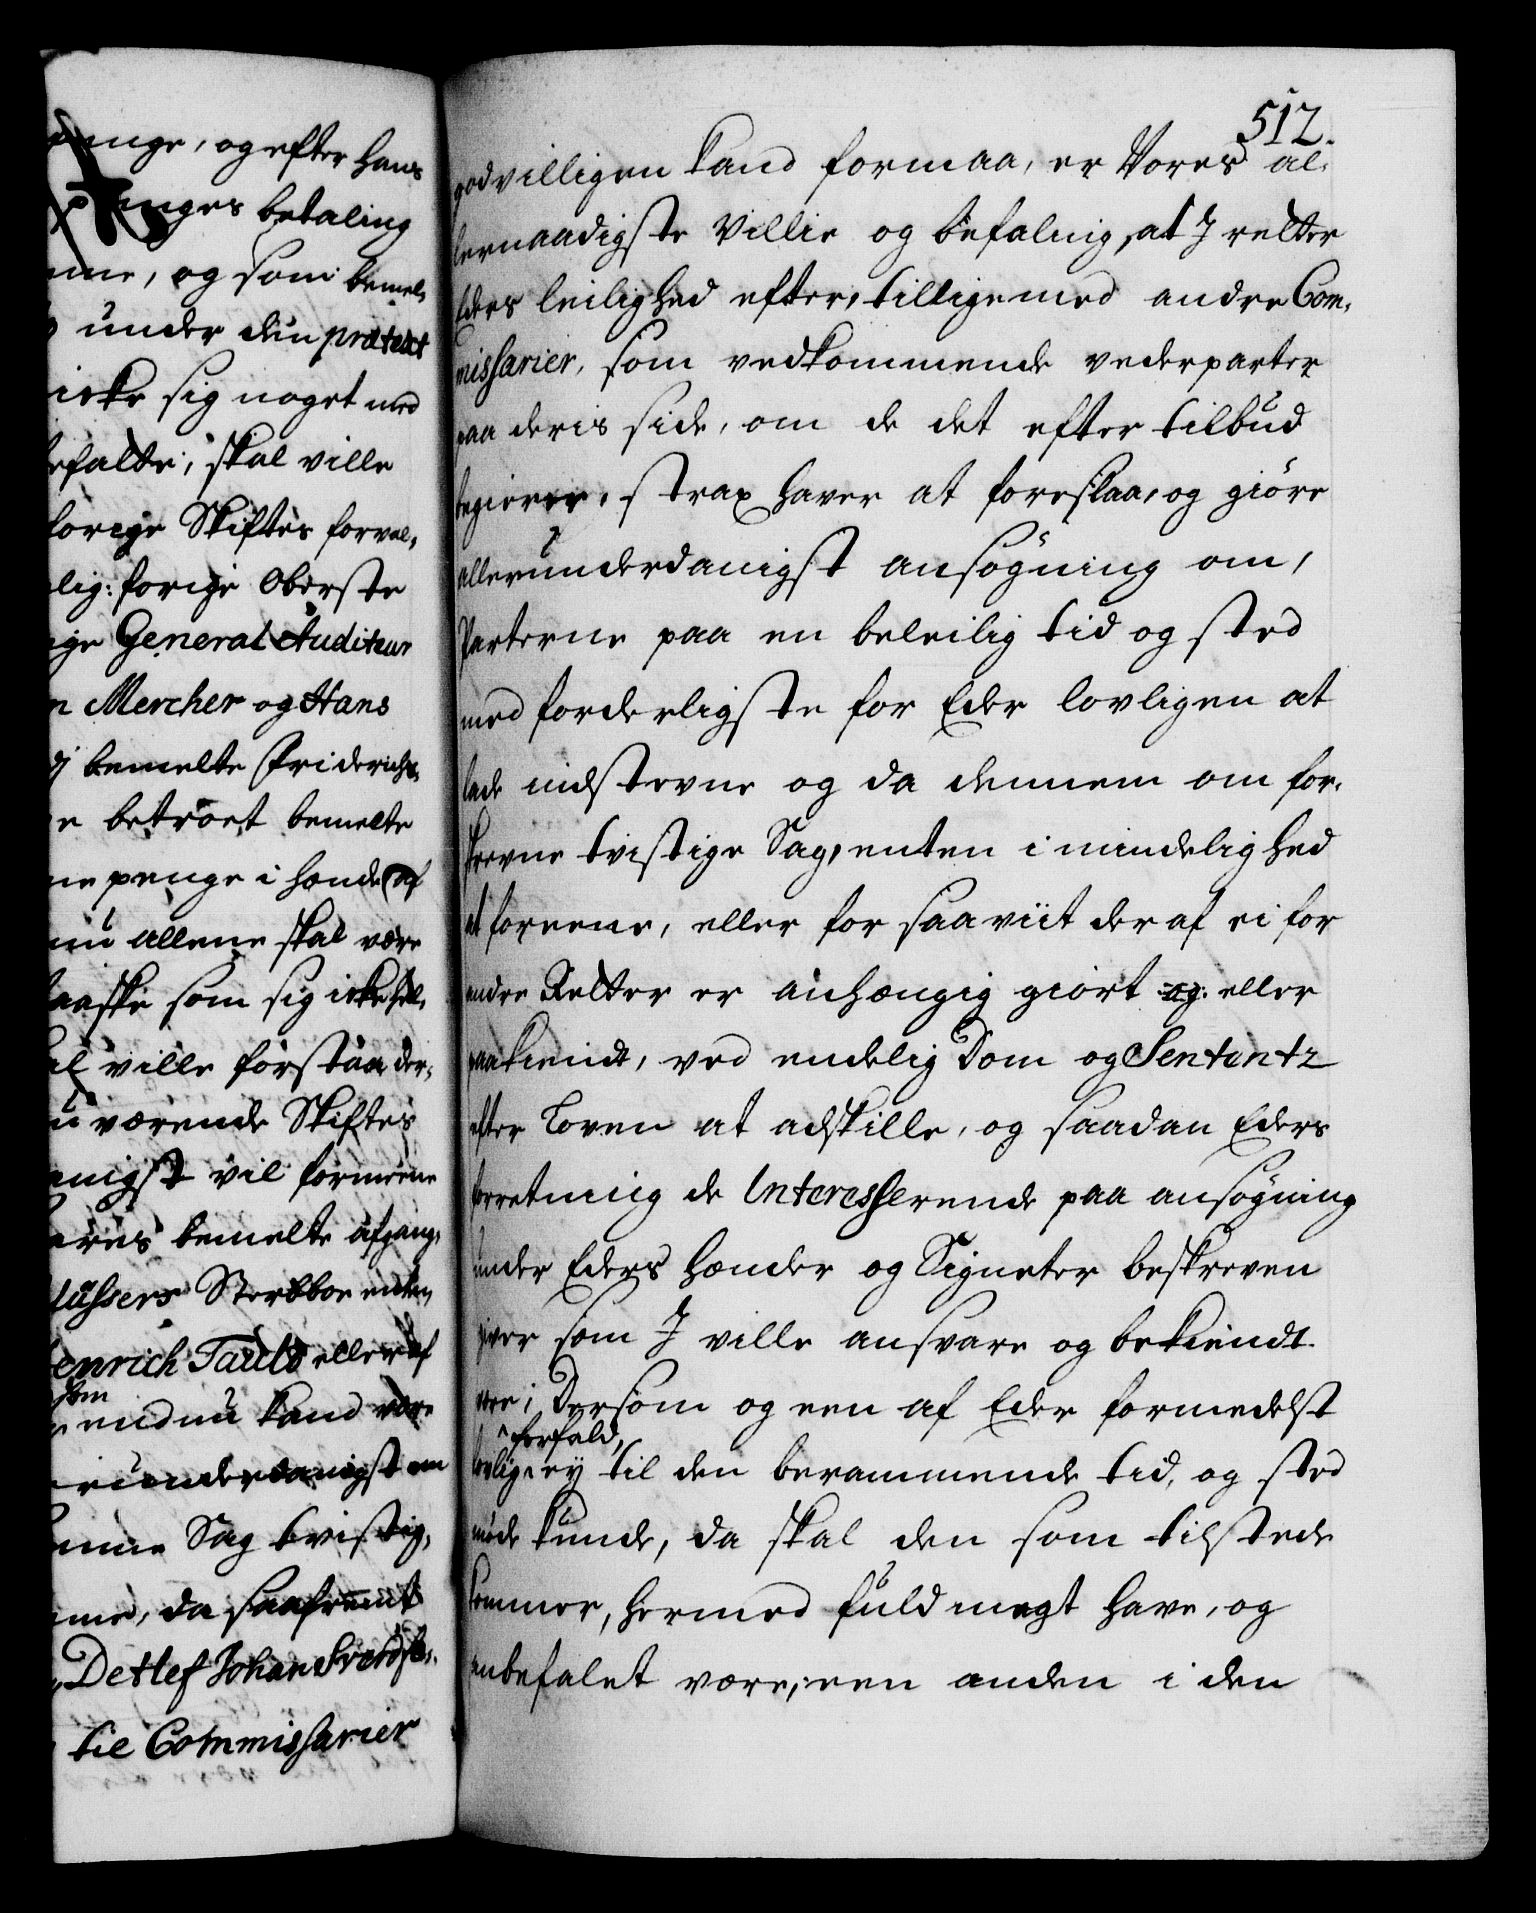 penge, og efter hans
penges betaling
og som bemel-
under den prætext
icke sig noget med
befalte; skal ville
forige Skiftes forval-
lig: forige Oberste
General Auditeur
Mercher og Hans
bemelte Friderichs-
betroet bemelte
penge i hænde af
nu allene skal være
som sig icke
ville forstaa der-
værende Skiftes
vil formeene
bemelte afgang-
Sterbboe enten
Henrich Pauls eller af
som
endnu kand være
allerunderdanigst om
Sag tvistig-
da saafremt
Detlef Johan
til Commissarier
512.
godvilligen kand formaa, er Vores al-
lernaadigste Villie og befaling, at I retter
Eders leilighed efter, tilligemed andre Com-
missarier, som vedkommende vederparter
paa deris side, om de det efter tilbud
begierer, strax haver at foreslaa, og giøre
allerunderdanigst ansøgning om,
Parterne paa en beleilig tid og sted
med forderligste for Eder lovligen at
lade indstevne og da dennem om for-
skrevne tvistige Sag, enten i mindelighed
at foreene, eller for saaviit der af ei for
andre Retter er anhængig giort og eller
paakiendt, ved endelig Dom og Sententz
efter Loven at adskille, og saadan Eders
forretning de Interesserende paa ansøgning
under Eders hænder og Signeter beskreven
giver som I ville ansvare og bekiendt
være; Dersom og een af Eder formedelst
forfald,
lovlig ey til den berammende tid, og sted
møde kunde, da skal den som tilstede
kommer, hermed fuldmagt have, og
anbefalet være, een anden i den